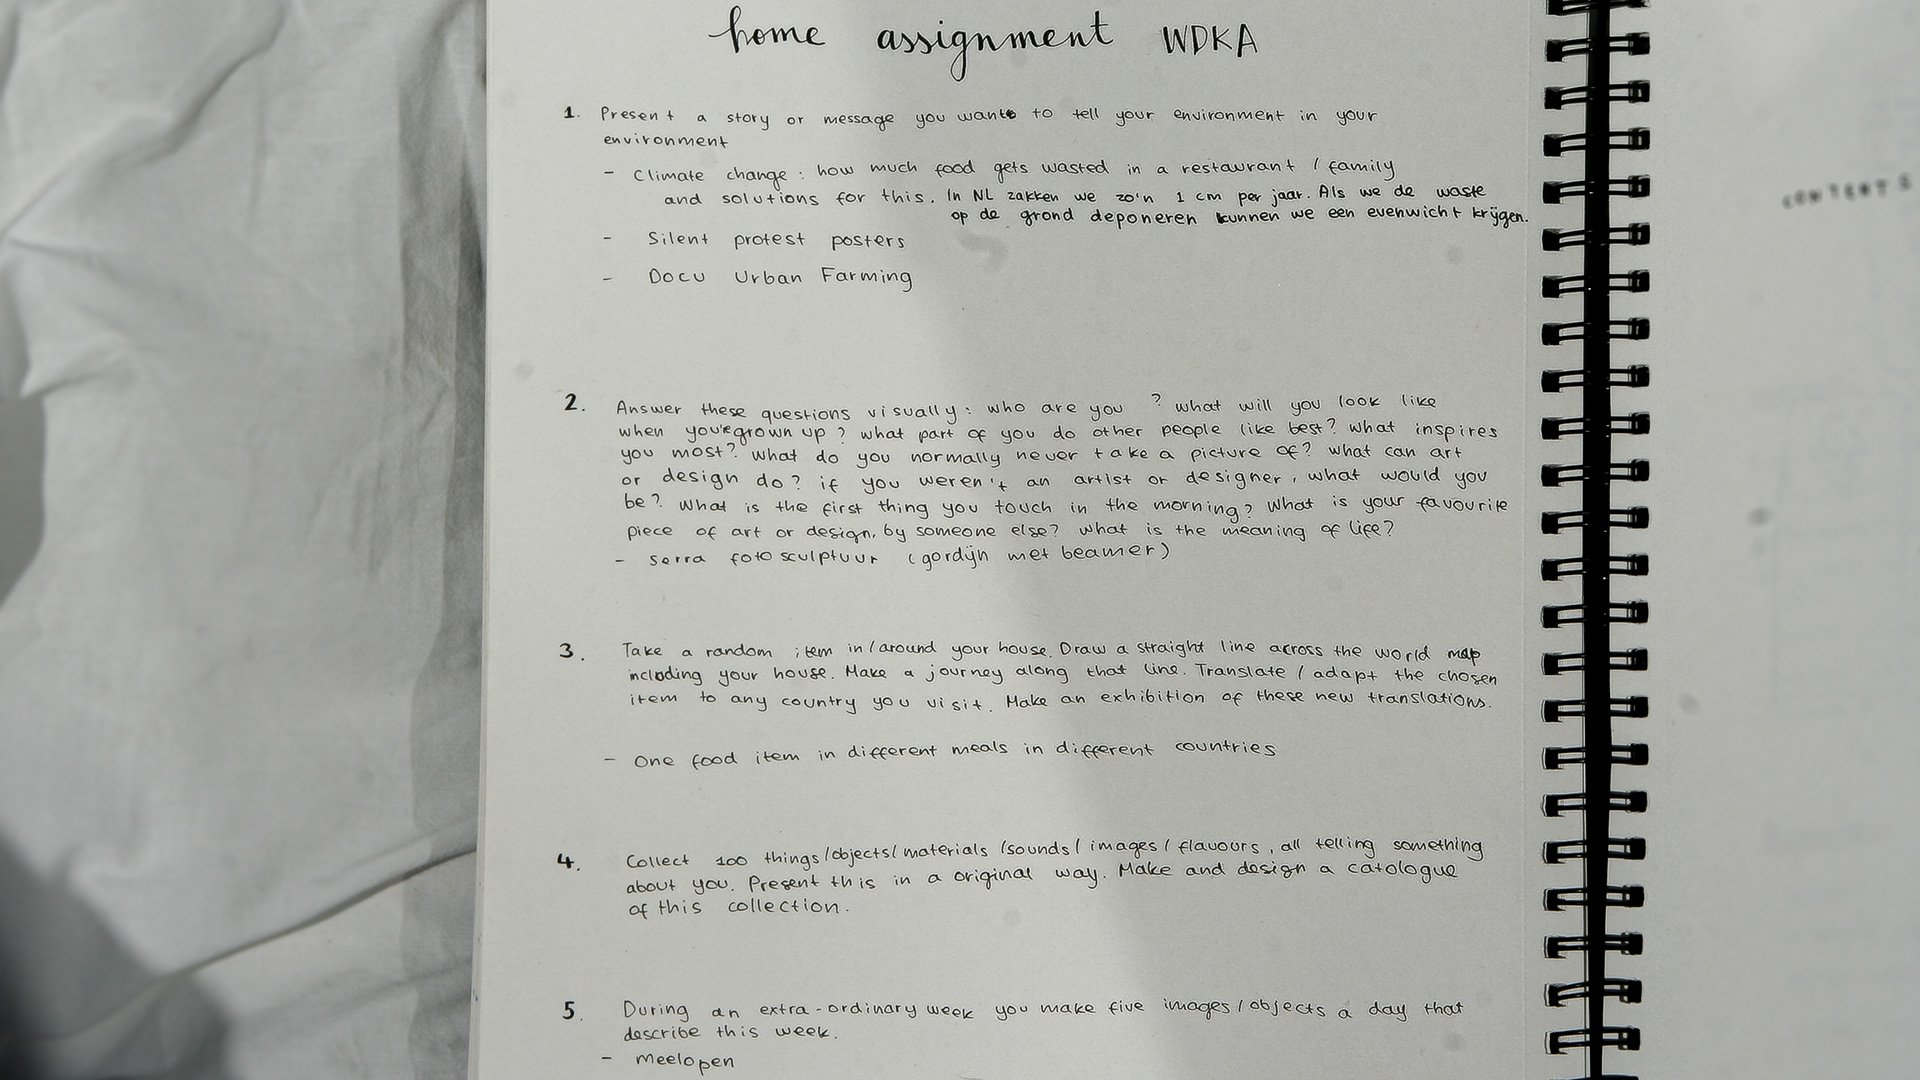 home assignment WDKA
1. Present a story or message you wants to tell your environment in your
environment
- Climate change: how much food gets wasted in a restaurant / family
and solutions for this. In NL zakken we zo'n 1 cm per jaar. Als we de waste
op de grond deponeren kunnen we een evenwicht krijgen.
- Silent protest posters
- Docu Urban Farming
2. Answer these questions visually: who are you ? what will you look like
when you're grown up? what part of you do other people like best? what inspires
you most? what do you normally never take a picture of? what can art
or design do? if you weren't an artist or designer, what would you
be? What is the first thing you touch in the morning? What is your favourite
piece of art or design, by someone else? what is the meaning of life?
- Serra foto sculptuur (gordijn met beamer)
3. Take a random item in/around your house. Draw a straight line across the world map
including your house. Make a journey along that line. Translate / adapt the chosen
item to any country you visit. Make an exhibition of these new translations.
- One food item in different meals in different countries
4. Collect 100 things/objects/materials/sounds/images/flavours, all telling something
about you. Present this in a original way. Make and design a catologue
of this collection.
5. During an extra-ordinary week you make five images/objects a day that
describe this week.
- meelopen
CONTENTS